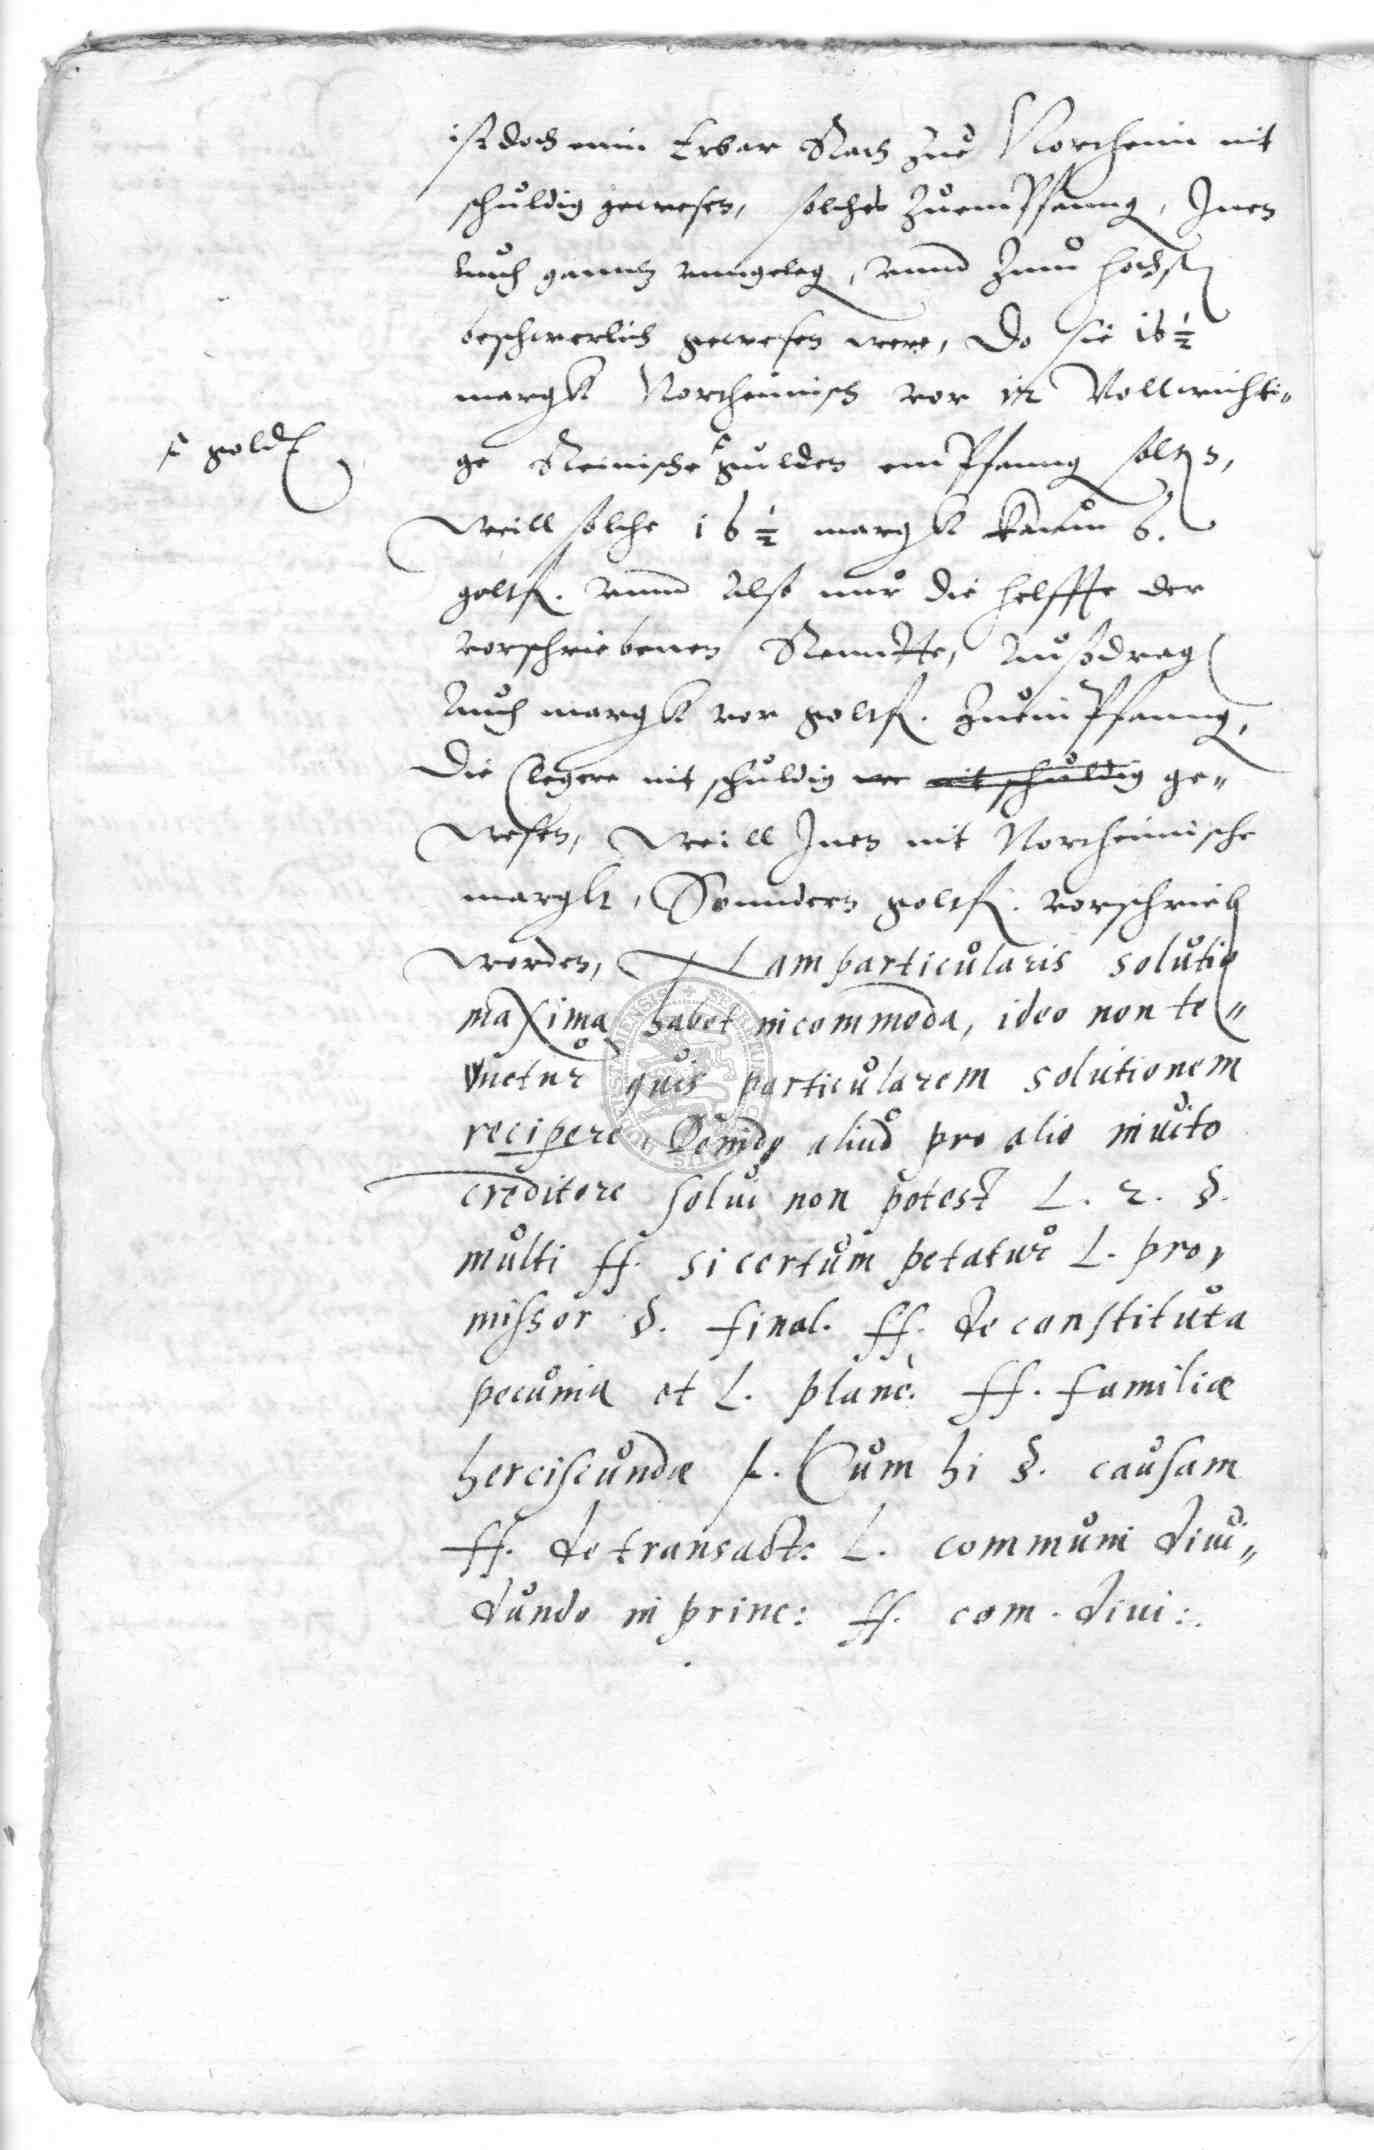 ist doch einn Erbar Rath zue Northeim nit
schuldig gewesen, solches zuempfanng, Inen
auch ganntz unngeleg, unnd zum höchst
beschwerlich gewesen were, Do sie 16 ½
margk Northeimisch vor 12 Vollwichti„
ge Reinische gulden empfanng solten,
⸢ goldt
weill solche 16 ½ margk kaum 6.
goltfl. unnd also nur die helffte der
vorschriebenen Renntte, Außdrag
Auch margk vor goltfl. zuempfanng,
die Clegere nit schuldig we nit schuldig ge„
wesen, weill Inen nit Northeimische
margk, Sonndern goltfl. vorschrieb
worden, Nam particularis solutio
maxima habet incommoda, ideo non te„
netur quis particularem solutionem
recipere, Deinde aliud pro alio inuito
creditore solui non potest L. 2. §.
multi ff. si certum petatur L. pro,
missor §. final. ff. de constituta
pecunia et L. planè. ff. familiæ
herciscundæ L. Cum hi §. causam
ff. de transact: L. communi diui„
dundo in princ: ff. com. diui:.